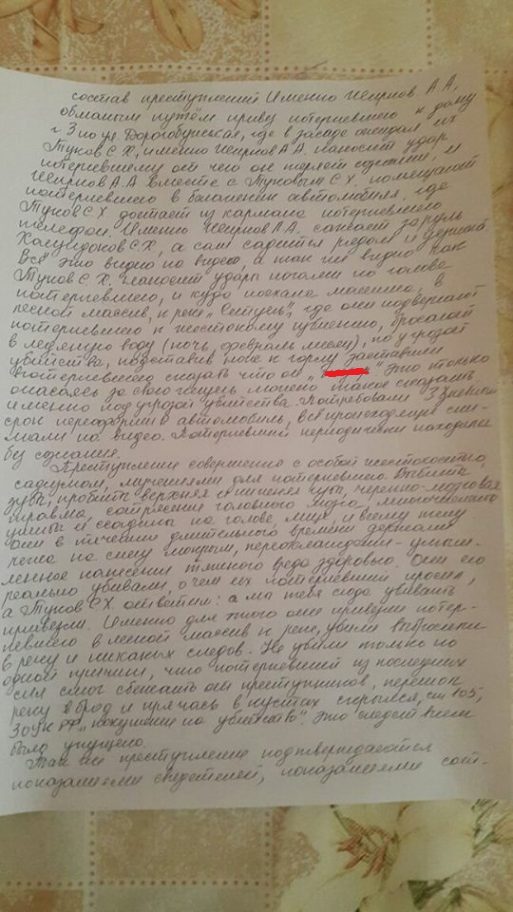 состав преступлений Именно Шнирнов А А,
обманным путём привёз потерпевшего к дому
г 3 по ул Дорогобужская, где в засаде ожидал их
Туков С Х, именно Шнирнов А А. наносит удар
потерпевшему от чего он теряет сознание, и
Шнирнов А.А вместе с Туковым С Х. помещают
потерпевшего в багажник автомобиля, где
Туков С Х достает из кармана потерпевшего
телефон. Именно Шнирнов А А. сажает за руль
С Х, а сам садится рядом и держит
Всё это видно на видео, а так же видно как
Туков С Х. наносит удары ногами по голове
потерпевшего, и куда поехала машина, в
лесной массив, к реке, где они подвергают
потерпевшего к жестокому избиению, бросают
в ледяную воду (ночь, февраль месяц), под угрозой
убийства, подставив нож к горлу заставили
потерпевшего сказать что он " " Это только
опасаясь за свою жизнь можно такое сказать
именно под угрозой убийства. Потребовали в 3 дневный
срок переоформить автомобиль, всё происходящее сни-
мали на видео. Потерпевший периодически находился
без сознания.
Преступление совершено с особой жестокостью,
садизмом, мучениями для потерпевшего. Выбиты
зубы, пробиты верхняя и нижняя губы, черепно-мозговая
травма, сотрясение головного мозга, множественные
ушибы и ссадины на голове, лице и всему телу
Они в течении длительного времени держали
на снегу мокрым, переохлаждение - умыш-
ленное нанесение тяжкого вреда здоровью. Они его
реально убивали, о чем их потерпевший просил,
а Туков С Х ответил: а мы тебя сюда убивать
привезли. Именно для этого они привезли потер-
певшего в лесной массив к реке, убили выбросили
в реку и никаких следов. Не убили только по
одной причине, что потерпевший из последних
сил смог сбежать от преступников, перешел
реку вброд и прячась в кустах скрылся, ст 105,
30 УК РФ „покушение на убийство". Это следствием
было упущено.
Так же преступление подтверждается
показаниями свидетелей, показаниями